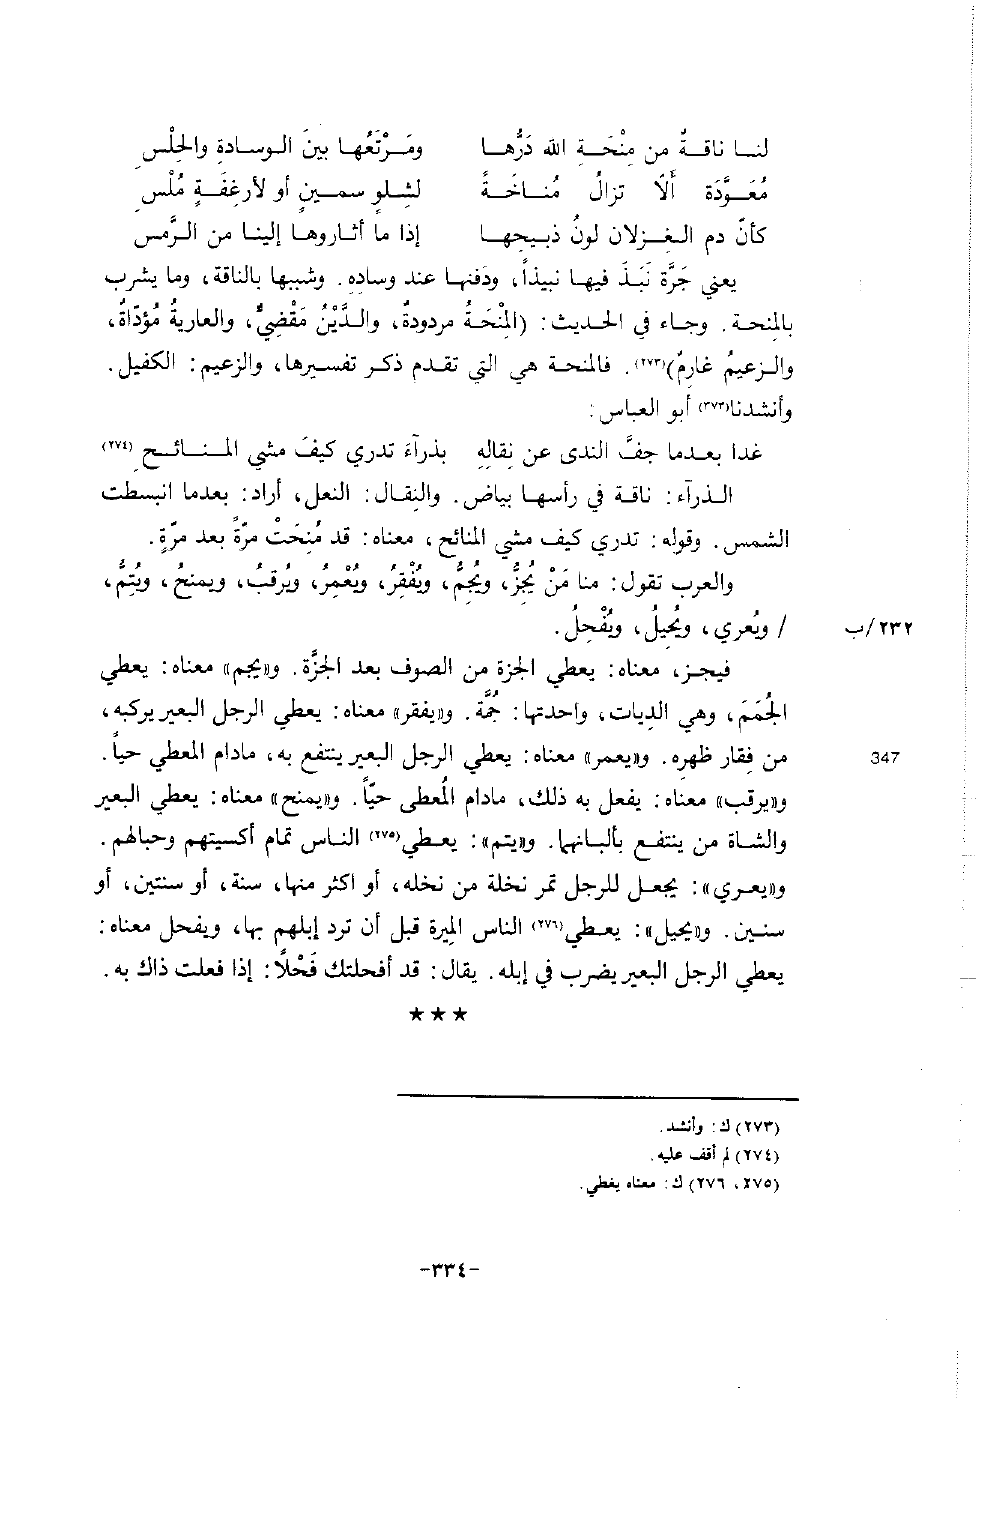 لنا ناقةٌ من مِنْحَةِ الله دَرُّها ومَرْتَعُها بينَ الوسادة والحِلْسِ
مُعَوَّدَة أَلَّا تزالُ مُناخَةً لشلوٍ سمينٍ أو لأرغفَةٍ مُلْسِ
كأنّ دم الغزلان لونُ ذبيحها إذا ما أثاروها إلينا من الرَّمس
يعني جَرَّة نَبَذَ فيها نبيذاً، ودَفنها عند وساده. وشبهها بالناقة، وما يشرب
بالمنحة. وجاء في الحديث: (المِنْحَةُ مردودةٌ، والدَّيْنُ مَقْضِيٌّ، والعاريةُ مُؤدّاةٌ،
والزعيمُ غارِمٌ)(٢٧٣). فالمنحة هي التي تقدم ذكر تفسيرها، والزعيم: الكفيل.
وأنشدنا(٢٧٣) أبو العباس:
غدا بعدما جفَّ الندى عن نِقالِهِ بذرآءَ تدري كيفَ مشي المنائح (٢٧٤)
الذرآء: ناقة في رأسها بياض. والنِقال: النعل، أراد: بعدما انبسطت
الشمس. وقوله: تدري كيف مشي المنائح، معناه: قد مُنِحَتْ مرّةً بعد مرّةٍ.
والعرب تقول: منا مَنْ يُجِزُّ، ويُجِمُّ، ويُفْقِرُ، ويُعْمِرُ، ويُرقبُ، ويمنحُ، ويُتِمُّ،
/ ويُعري، ويُحيلُ، ويُفْحِلُ. ٢٣٢/ب
فيجز، معناه: يعطي الجزة من الصوف بعد الجزَّة. و«يجم» معناه: يعطي
الجُمَمَ، وهي الديات، واحدتها: جُمَّة. و«يفقر» معناه: يعطي الرجل البعير يركبه،
من فقار ظهره. و«يعمر» معناه: يعطي الرجل البعير ينتفع به، مادام المعطي حياً. 347
و«يرقب» معناه: يفعل به ذلك، مادام المُعطى حيّاً. و«يمنح» معناه: يعطي البعير
والشاة من ينتفع بألبانها. و«يتم»: يعطي(٢٧٥) الناس تمام أكسيتهم وحبالهم.
و«يعري»: يجعل للرجل تمر نخلة من نخله، أو اكثر منها، سنة، أو سنتين، أو
سنين. و«يحيل»: يعطي(٢٧٦) الناس الميرة قبل أن ترد إبلهم بها، ويفحل معناه:
يعطي الرجل البعير يضرب في إبله. يقال: قد أفحلتك فَحْلاً: إذا فعلت ذاك به.
★ ★ ★
(٢٧٣) ك: وأنشد.
(٢٧٤) لم أقف عليه.
(٢٧٥، ٢٧٦) ك: معناه يعطي.
-٣٣٤-